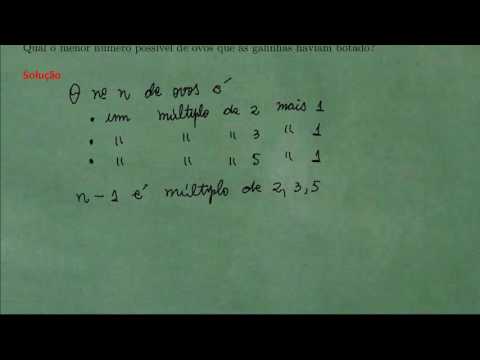 Qual o menor número possível de ovos que as galinhas haviam botado?
Solução
O nº n de ovos é
• um múltiplo de 2 mais 1
• " " " 3 " 1
• " " " 5 " 1
n - 1 é múltiplo de 2, 3, 5